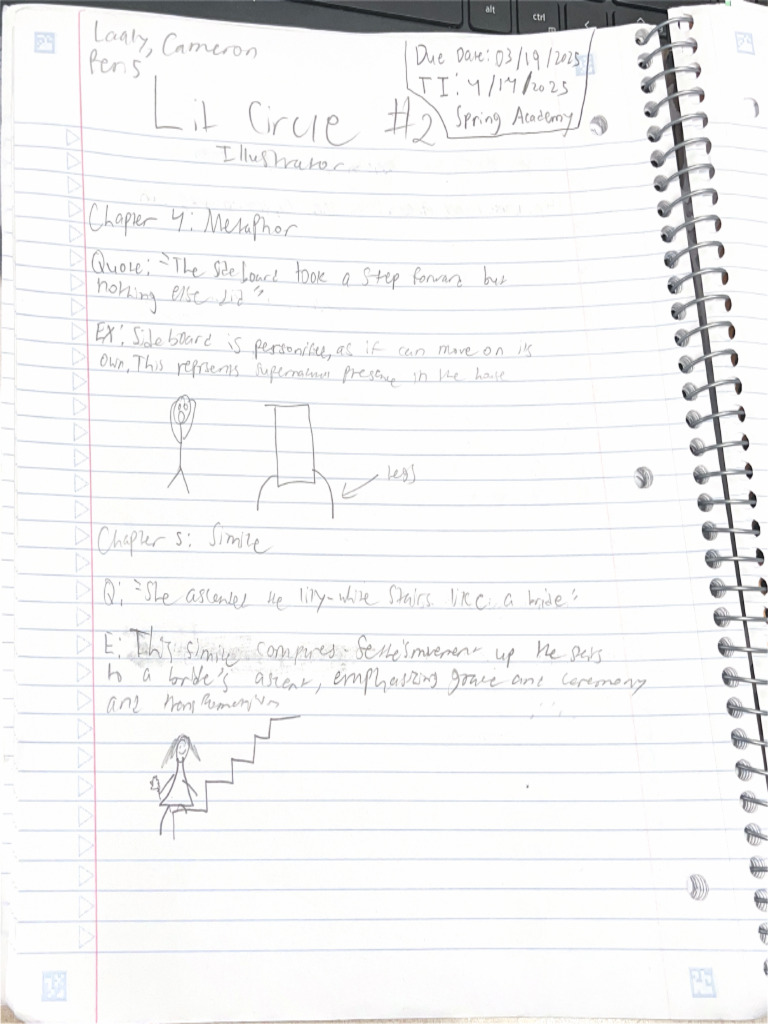 alt
ctrl
Laaly, Cameron
Per5
Due Date: 03/19/2025
TI: 4/14/2025
Spring Academy
Lit Circle #2
Illustrator
Chapter 4: Metaphor
Quote: "The sideboard took a step forward but
nothing else did".
EX: Sideboard is personified, as if it can move on its
own. This reprsents supernatural presence in the house
Legs
Chapter 5: Simile
Q: "She ascended the lily-white stairs like a bride"
E: This simile compares Sethe's movement up the stairs
to a bride's ascent, emphasizing grace and ceremony
and transformation